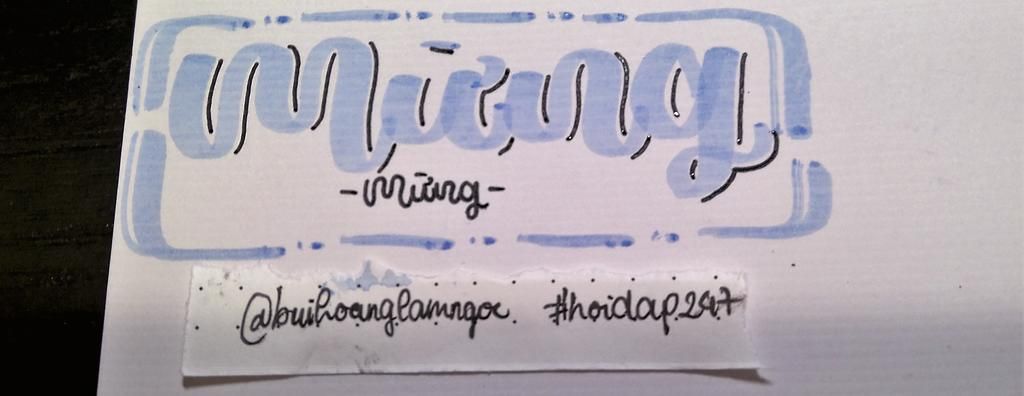 mừng
-mừng-
@buihoanglamngoc #hoidap247